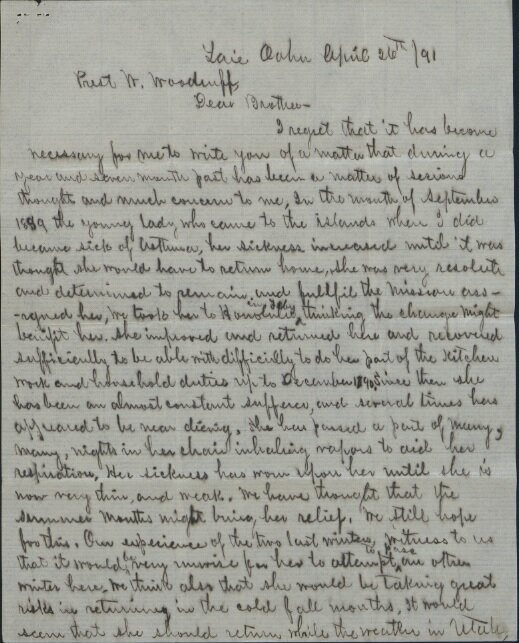 Laie Oahu April 26th/91
Prest W. Woodruff
Dear Brother—
I regret that it has become
necessary for me to write you of a matter that during a
year and seven month past has been a matter of serious
thought and much concern to me, In the month of September
1889 the young lady who came to the islands when I did
became sick of Asthma, her sickness increased until it was
thought she would have to return home, she was very resolute
and determined to remain and fullfil the mission ass-
-igned her, We took her to Honolulu thinking the change might
benifit her. She improved and returned here and recovered
sufficiently to be able with difficulty to do her part of the Kitchen
work and household duties up to December 1890, Since then she
has been an almost constant sufferer, and several times has
appeared to be near dieing. She has passed a part of many,
many, nights in her chair inhaling vapors to aid her
respiration, Her sickness has worn upon her until she is
now very thin, and weak. We have thought that the
summer months might bring her relief. We still hope
for this. Our experience of the two last winters, witness to us
that it would be very unwise for her to attempt to pass an other
winter here, We think also that she would be taking great
risks in returning in the cold fall months, It would
seem that she should return while the weather in Utah